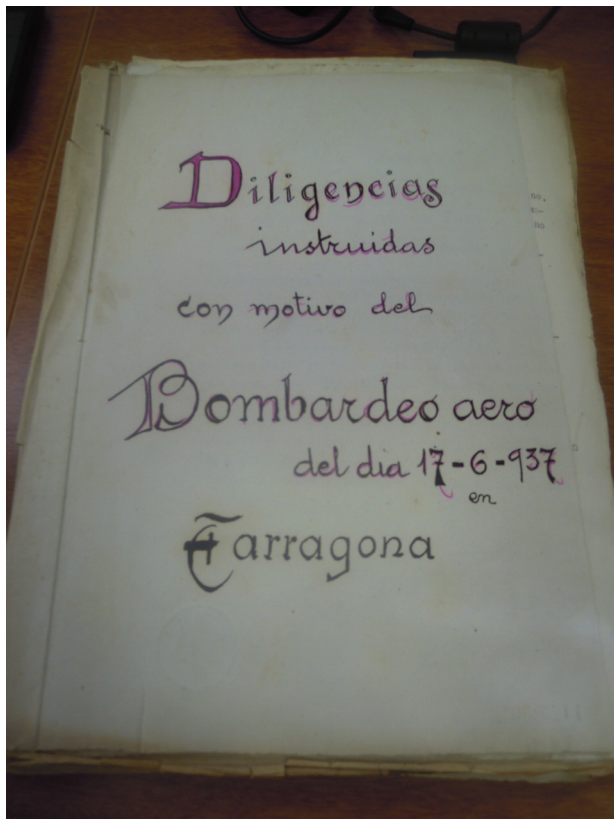 Diligencias
instruidas
con motivo del
Bombardeo aero
del dia 17-6-937
en
Tarragona